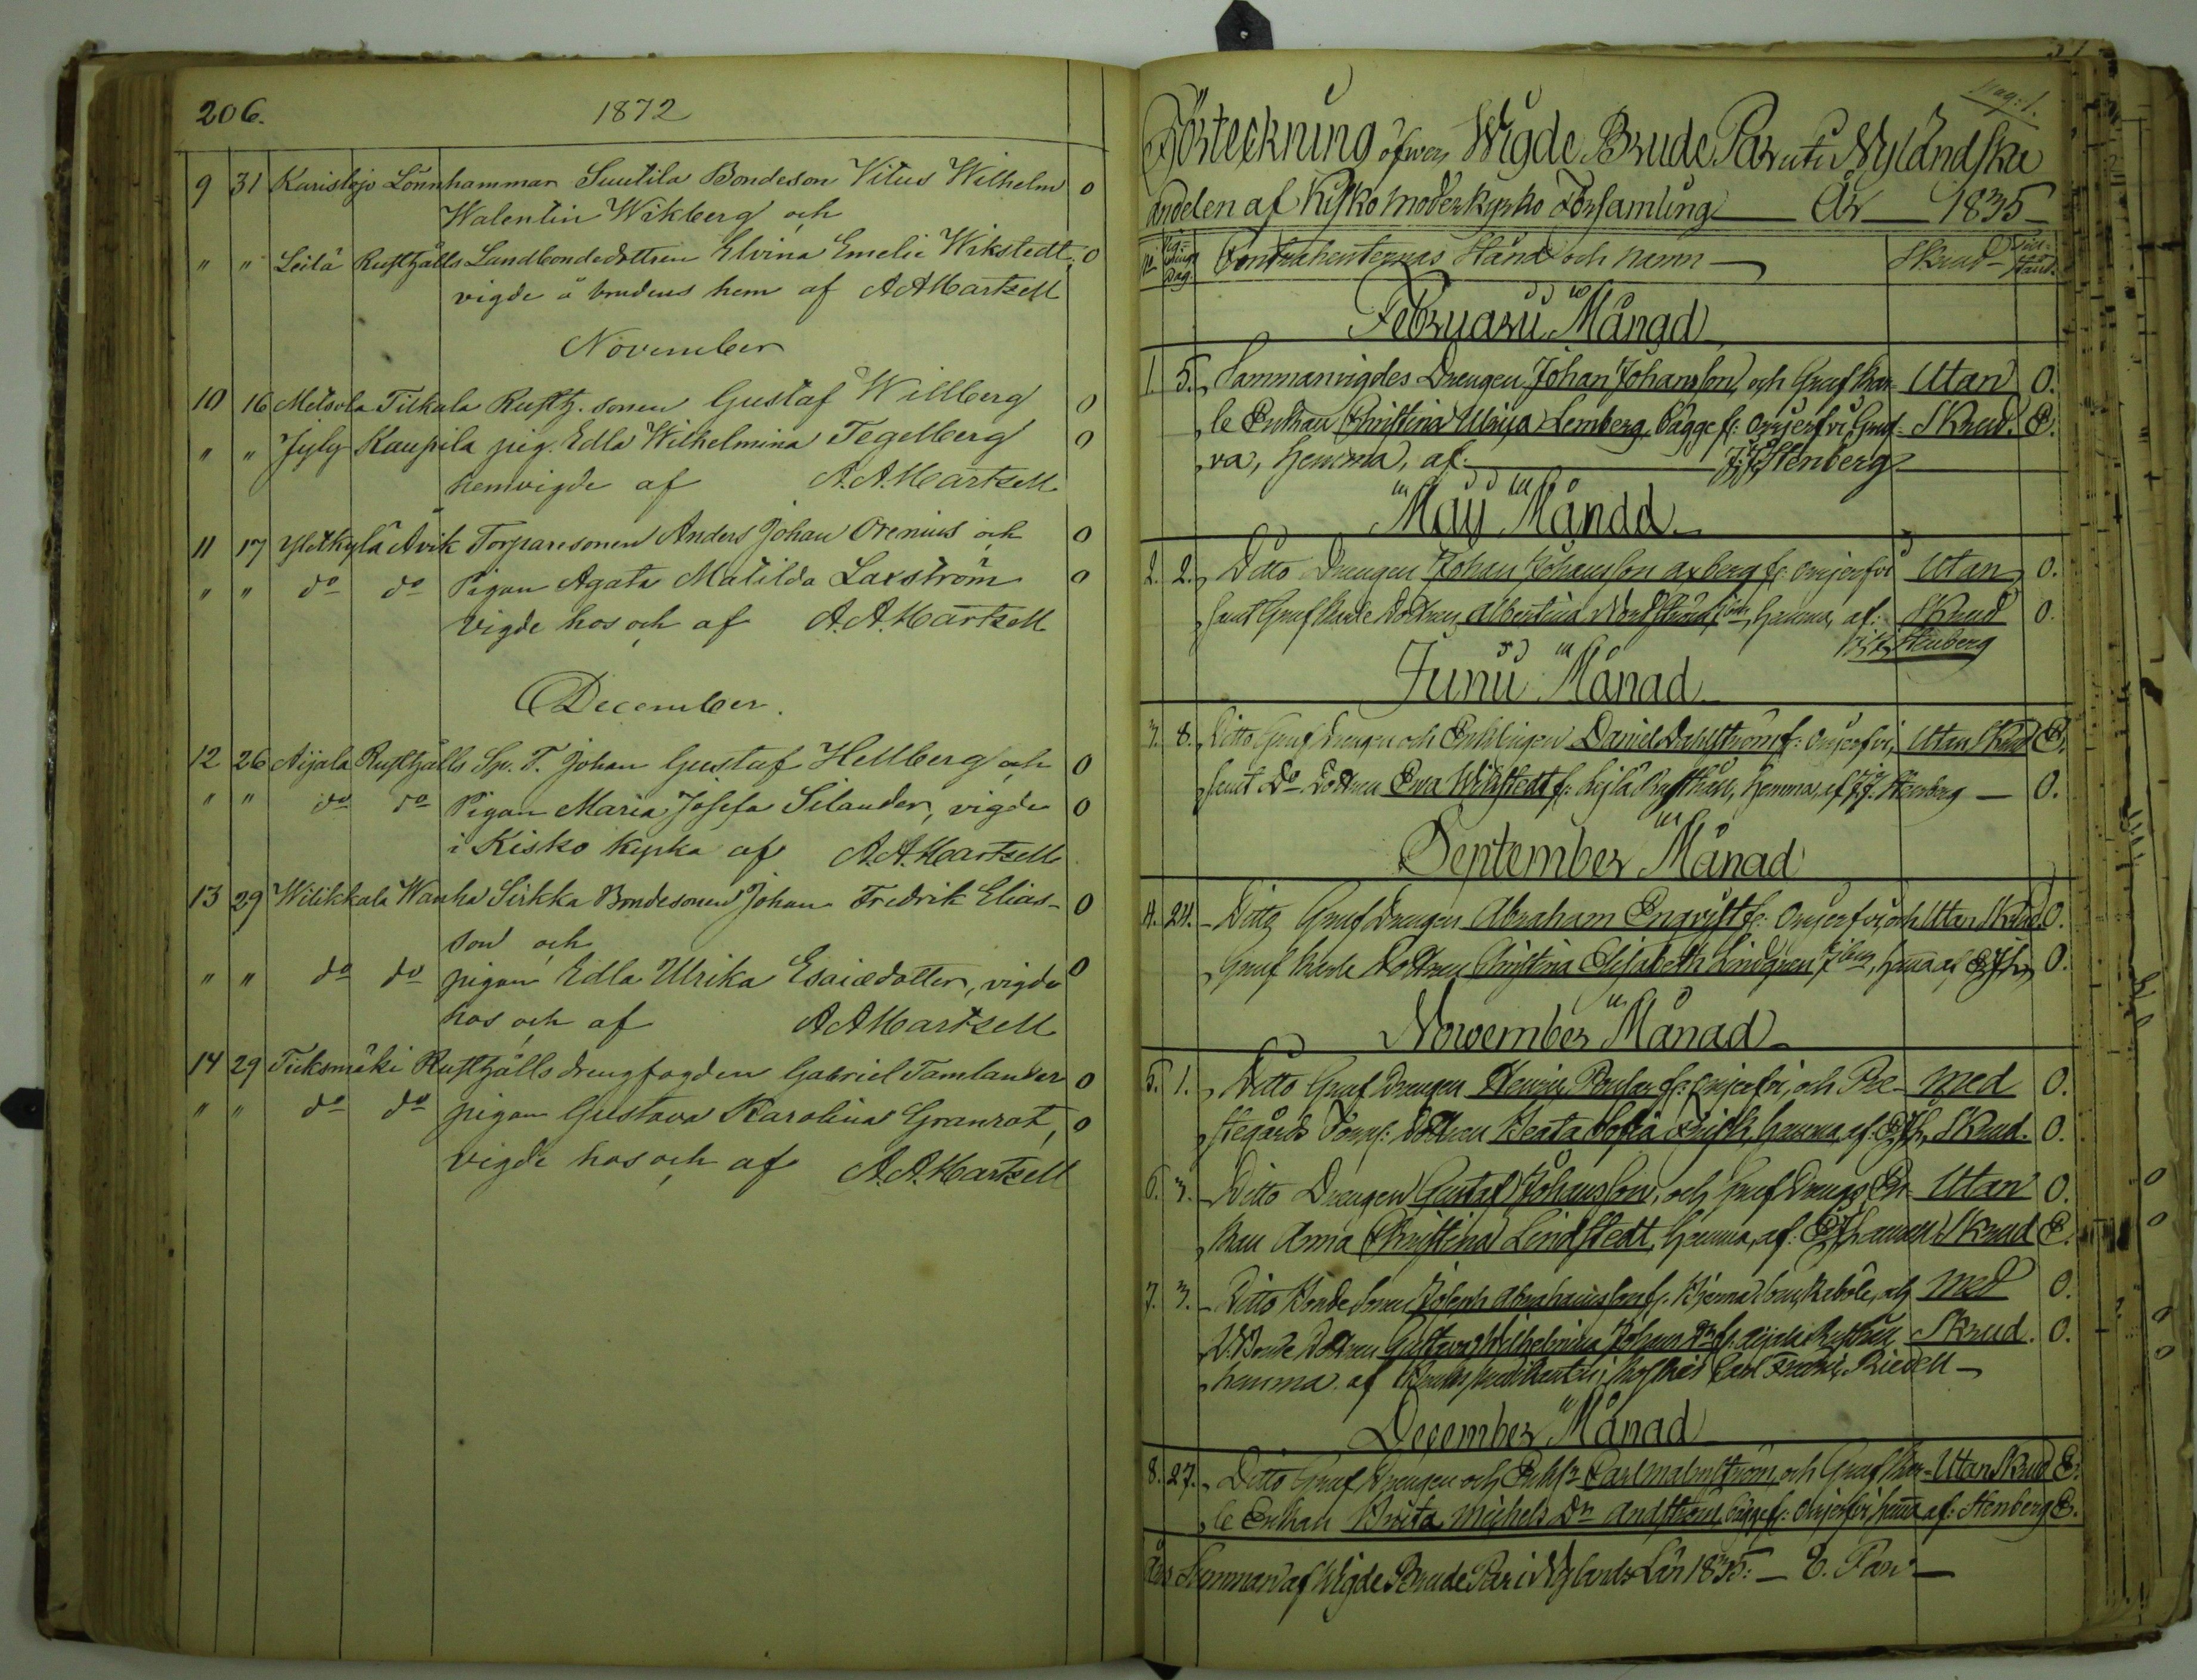 206. 1872
9 31 Karislojo Lönnhammar Suutila Bondeson Vitus Wilhelm 0
Walentin Wikberg och
" " Leilä Rusthålls Landbondedottren Elvina Emelie Wikstedt, 0
vigde å brudens hem af A A Hartzell
November
10 16 Metsola Tilkala Rusth. sonen Gustaf Willberg 0
" " Jyly Kaupila pig. Edla Wilhelmina Tegelberg 0
hemvigde af A. A. Hartzell
11 17 Yletkylä Avik Torparesonen Anders Johan Orenius och 0
" " do do Pigan Agata Matilda Laxström 0
vigde hos och af A. A. Hartzell
December.
12 26 Aijala Rusthålls Sp. T. Johan Gustaf Hellberg och 0
" " do do Pigan Maria Josefa Silander, vigde 0
i Kisko kyrka af A. A. Hartzell
13 29 Wilikkala Wanha Sirkka Bondesonen Johan Fredrik Elias- 0
son och
" " do do pigan Edla Ulrika Esaiædotter, vigde 0
hos och af A A Hartzell
14 29 Tieksmäki Rusthålls drengfogden Gabriel Tamlander 0
" " do do pigan Gustava Karolina Granrot, 0
vigde hos och af A. A. Hartzell
51
Pag: 1.
Förteckning öfwer Wigde Brude Par uti Nyländska
andelen af Kisko moderkyrko Församling År 1835
No Wig- nings Dag Contrahenternas Stånd och namn Skrud
Februarii Månad
1. 5. Sammanvigdes Drengen Johan Johansson, och Grufkar- Utan 0.
le Enkan Christina Ulrica Lemberg, bägge fr. Orijerfvi Gruf- Skrud. E.
va, hemma, af: J. J. Stenberg
Maij Månad
2. 2. Ditto Drengen Johan Johansson Axberg fr. Orijerfvi Utan 0.
samt Gruf Karle Dottren Albertina Nordström, hemma, af: Skrud 0.
J. J. Stenberg
Junii Månad
3. 8. Ditto Gruf Drengen och Enklingen Daniel Dahlström fr: Orijerfvi, Utan Skrud E.
samt Do Dottren Ewa Wikstedt fr: Leilä Rusthåll, hemma, af J. J. Stenberg 0.
September Månad
4. 24. Ditto Gruf Drengen Abraham Enqvist fr: Orijerfvi, och Utan Skrud. 0.
Gruf Karle Dottren Christina Elisabeth Lindgren 0.
Nowember Månad
5. 1. Ditto Gruf Drengen Henric fr: Orijerfvi, och Pre- med 0.
stegårds Torp: Dottren Beata Sofia hemma, af: Skrud. 0.
6. 3. Ditto Drengen Gustaf Johansson, och Gruf Drengs En- Utan 0.
kan Anna Christina Lindstedt, hemma, af: Skrud E.
7. 3. Ditto Bonde Sonen Joseph Abrahamsson fr. och med 0.
Bonde Dottren Gustava Wilhelmina Johans Dr fr. Aijala Rusthåll Skrud. 0.
hemma, af Carl Fredric Riedell
December Månad
8. 27. Ditto Gruf Drengen och Enkl: Carl Malmström, och Gruf Kar- Utan Skrud E.
le Enkan Brita Michels Dr Andström, bägge fr: Orijerfvi hema af: Stenberg E.
Års Summan af Wigde Brude Par i Nylands Län 1835: 8. Par